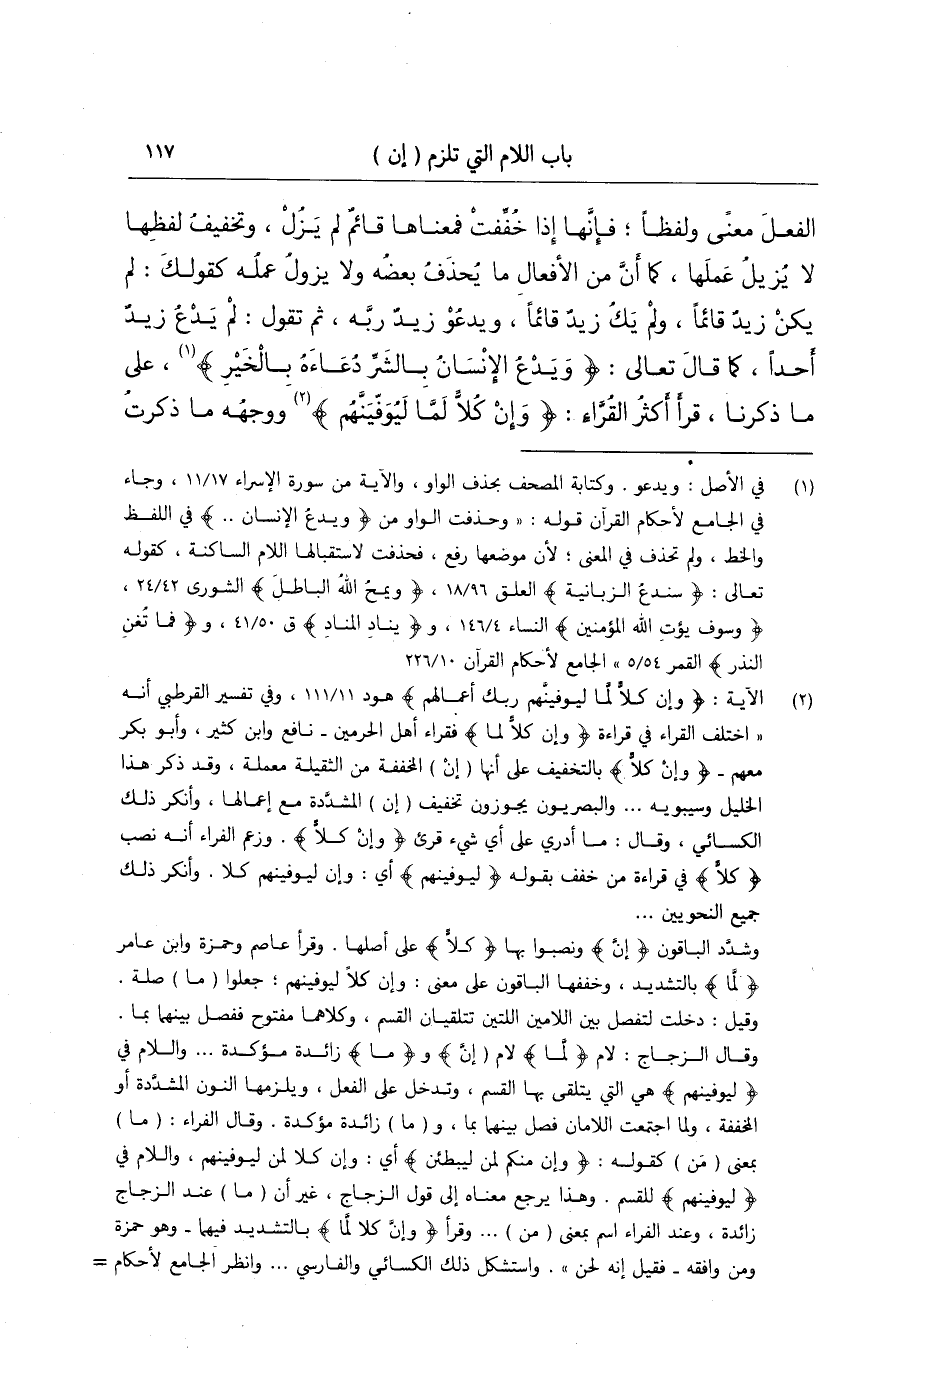 باب اللام التي تلزم ( إن ) ١١٧
الفعلَ معنًى ولفظاً ؛ فإنَّها إذا خُفِّفتْ فمعناها قائمٌ لم يَزُلْ ، وتخفيفُ لفظِها
لا يُزيلُ عَملَها ، كما أنَّ من الأفعال ما يُحذَفُ بعضُه ولا يزولُ عملُه كقولكَ : لم
يكنْ زيدٌ قائماً ، ولمْ يَكُ زيدٌ قائماً ، ويدعوْ زيدٌ ربَّه ، ثم تقول : لمْ يَدْعُ زيدٌ
أحداً ، كما قالَ تعالى : ﴿ وَيَدْعُ الإنْسَانُ بالشَّرِّ دُعَاءَهُ بالْخَيْرِ ﴾(١) ، على
ما ذكرنا ، قرأ أكثرُ القُرَّاء : ﴿ وَإنْ كُلاًّ لَمَّا لَيُوَفِّيَنَّهُم ﴾(٢) ووجهُه ما ذكرتُ
(١) في الأصل : ويدعو . وكتابة المصحف بحذف الواو ، والآية من سورة الإسراء ١١/١٧ ، وجاء
في الجامع لأحكام القرآن قوله : « وحذفت الواو من ﴿ ويدعُ الإنسان .. ﴾ في اللفظ
والخط ، ولم تحذف في المعنى ؛ لأن موضعها رفع ، فحذفت لاستقبالها اللام الساكنة ، كقوله
تعالى : ﴿ سندعُ الزبانية ﴾ العلق ١٨/٩٦ ، ﴿ ويمحُ اللهُ الباطلَ ﴾ الشورى ٢٤/٤٢ ،
﴿ وسوف يؤتِ الله المؤمنين ﴾ النساء ١٤٦/٤ ، و ﴿ ينادِ المنادِ ﴾ ق ٤١/٥٠ ، و ﴿ فما تُغنِ
النذر ﴾ القمر ٥/٥٤ » الجامع لأحكام القرآن ٢٢٦/١٠
(٢) الآية : ﴿ وإن كلاًّ لَمَّا ليوفينَّهم ربك أعمالهم ﴾ هود ١١١/١١ ، وفي تفسير القرطبي أنه
« اختلف القراء في قراءة ﴿ وإن كلاًّ لما ﴾ فقراء أهل الحرمين ـ نافع وابن كثير ، وأبو بكر
معهم ـ ﴿ وإن كلاًّ ﴾ بالتخفيف على أنها ( إنْ ) المخففة من الثقيلة معملة ، وقد ذكر هذا
الخليل وسيبويه ... والبصريون يجوزون تخفيف ( إن ) المشدَّدة مع إعمالها ، وأنكر ذلك
الكسائي ، وقال : ما أدري على أي شيء قرئ ﴿ وإنْ كلاًّ ﴾ . وزعم الفراء أنه نصب
﴿ كلاًّ ﴾ في قراءة من خفف بقوله ﴿ ليوفينهم ﴾ أي : وإن ليوفينهم كلا . وأنكر ذلك
جميع النحويين ...
وشدَّد الباقون ﴿ إنَّ ﴾ ونصبوا بها ﴿ كلاًّ ﴾ على أصلها . وقرأ عاصم وحمزة وابن عامر
﴿ لَمَّا ﴾ بالتشديد ، وخففها الباقون على معنى : وإن كلاًّ ليوفينهم ؛ جعلوا ( ما ) صلة .
وقيل : دخلت لتفصل بين اللامين اللتين تتلقيان القسم ، وكلاهما مفتوح ففصل بينها بما .
وقال الزجاج : لام ﴿ لَمَّا ﴾ لام ( إنَّ ﴾ و ﴿ ما ﴾ زائدة مؤكدة ... واللام في
﴿ ليوفينهم ﴾ هي التي يتلقى بها القسم ، وتدخل على الفعل ، ويلزمها النون المشدَّدة أو
المخففة ، ولما اجتمعت اللامان فصل بينها بما ، و ( ما ) زائدة مؤكدة . وقال الفراء : ( ما )
بمعنى ( مَن ) كقوله : ﴿ وإن منكم لمن ليبطئن ﴾ أي : وإن كلا لمن ليوفينهم ، واللام في
﴿ ليوفينهم ﴾ للقسم . وهذا يرجع معناه إلى قول الزجاج ، غير أن ( ما ) عند الزجاج
زائدة ، وعند الفراء اسم بمعنى ( من ) ... وقرأ ﴿ وإنَّ كلا لمَّا ﴾ بالتشديد فيها ـ وهو حمزة
ومن وافقه ـ فقيل إنه لحن » . واستشكل ذلك الكسائي والفارسي ... وانظر الجامع لأحكام =